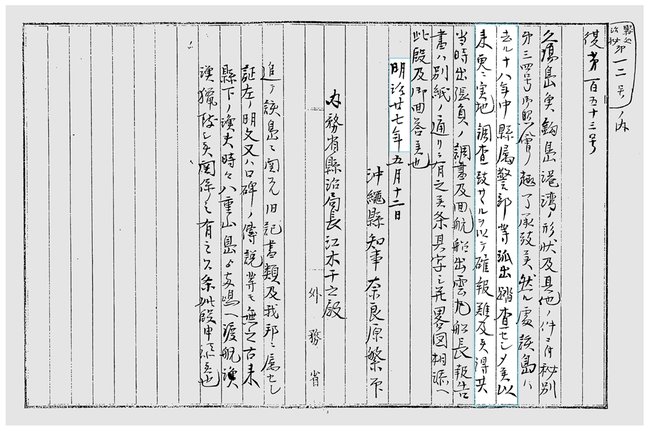 縣処
秘第一二号ノ内
復第百五十三号
久場島魚釣島港湾ノ形状及其他ノ件ニ付秘別
第三四号御照會ノ趣了承致候然ル處該島ハ
去ル十八年中縣属警部等派出踏査セシメ候以
来更ニ実地調査致サヽルヲ以テ確報難及候得共
当時出張員ノ調書及回航船出雲丸船長報告
書ハ別紙ノ通リニ有之候条其字ニ並畧図相添ヘ
此段及御回答候也
明治廿七年五月十二日
沖縄縣知事奈良原繁
内務省縣治局長江木干之殿
外務省
追テ該島ニ関スル旧記書類及我邦ニ属セシ
証左ノ明文又ハ口碑ノ傳説等モ無之古来
縣下ノ漁夫時々八重山島ヨリ両島ヘ渡航漁
漁獵致シ候関係ノミ有之候条此段申添候也